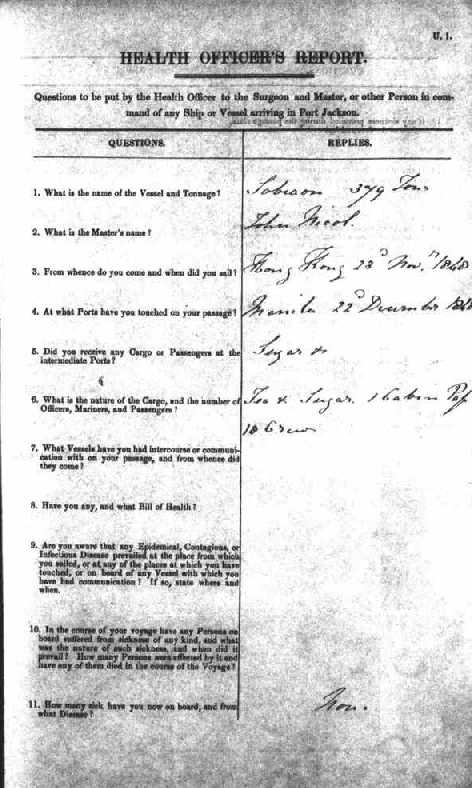 U. 1.
HEALTH OFFICER'S REPORT.
Questions to be put by the Health Officer to the Surgeon and Master, or other Person in com-
mand of any Ship or Vessel arriving in Port Jackson.
QUESTIONS.
REPLIES.
1. What is the name of the Vessel and Tonnage?
379 Tons
2. What is the Master's name?
John Nicol.
3. From whence do you come and when did you sail?
Hong Kong 23d Novr.
4. At what Ports have you touched on your passage?
Manila 22d December
5. Did you receive any Cargo or Passengers at the
intermediate Ports?
Sugar &
6. What is the nature of the Cargo, and the number of
Officers, Mariners, and Passengers?
Tea & Sugar 1 Cabin
Crew
7. What Vessels have you had intercourse or communi-
cation with on your passage, and from whence did
they come?
8. Have you any, and what Bill of Health?
9. Are you aware that any Epidemical, Contagious, or
Infectious Disease prevailed at the place from which
you sailed, or at any of the places at which you have
touched, or on board of any Vessel with which you
have had communication? If so, state where and
when.
10. In the course of your voyage have any Persons on
board suffered from sickness of any kind, and what
was the nature of such sickness, and when did it
prevail? How many Persons were affected by it and
have any of them died in the course of the Voyage?
11. How many sick have you now on board, and from
what Disease?
Non.